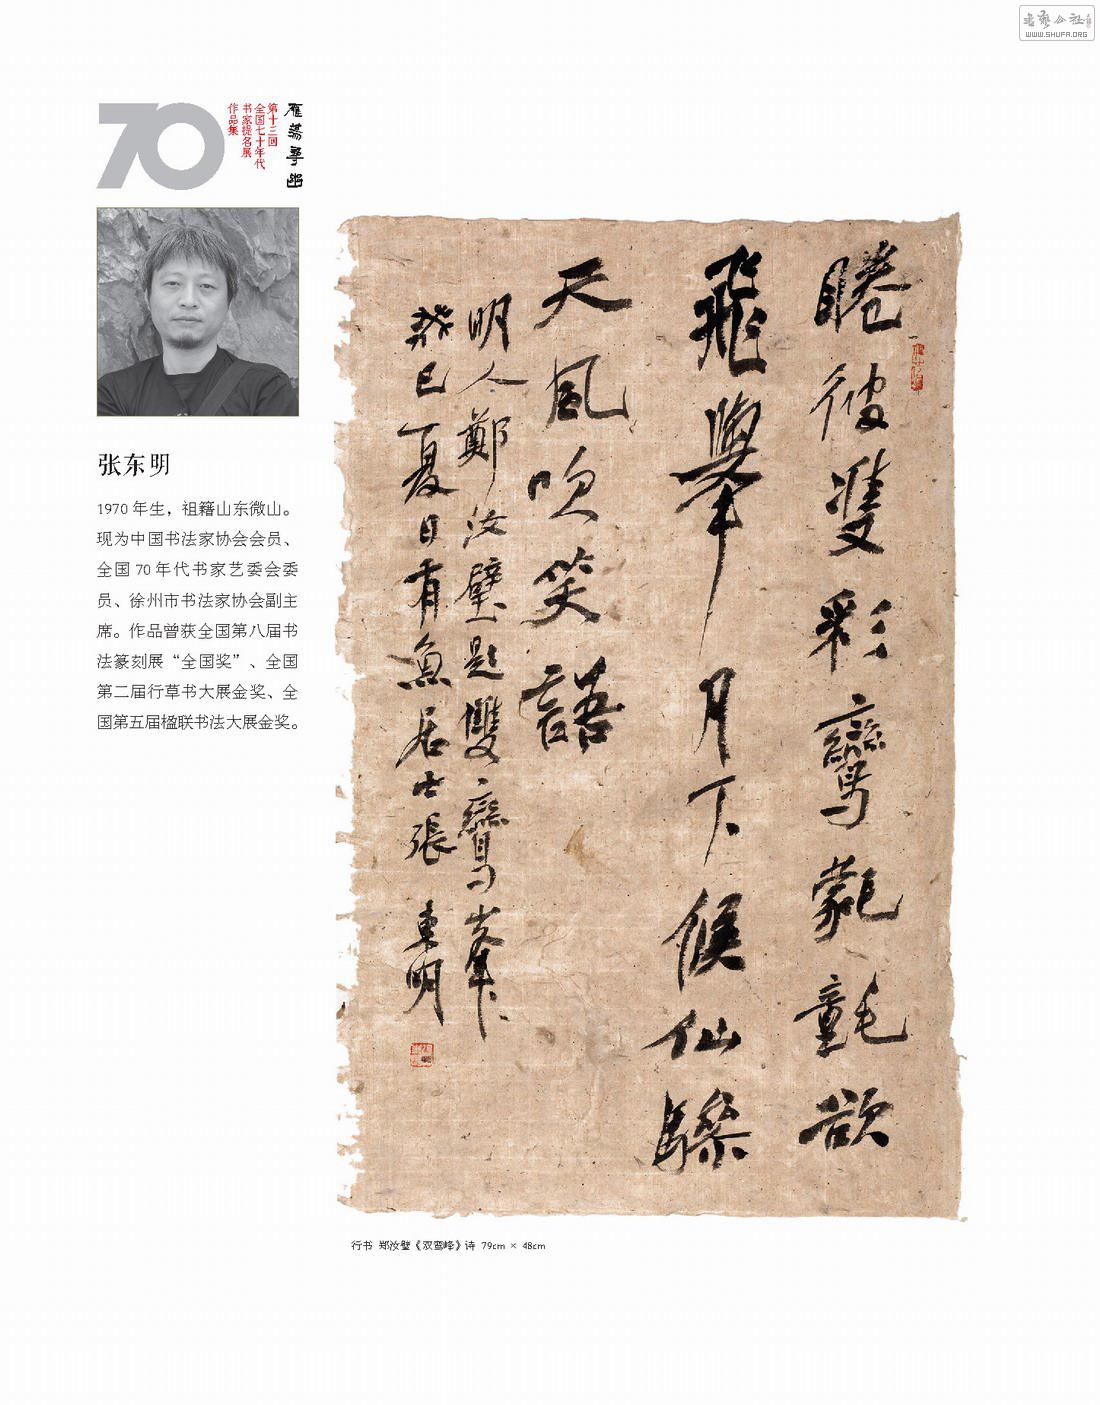 书法公社
WWW.SHUFA.ORG
70
雁荡寻幽
第十三回
全国七十年代
书家提名展
作品集
张东明
1970 年生，祖籍山东微山。
现为中国书法家协会会员、
全国 70 年代书家艺委会委
员、徐州市书法家协会副主
席。作品曾获全国第八届书
法篆刻展“全国奖”、全国
第二届行草书大展金奖、全
国第五届楹联书法大展金奖。
睠彼雙彩鸞氋氃欲
飛舉月下候仙驂
天風吹笑語
明人鄭汝璧題雙鸞峯
癸巳夏日有魚居士張東明
行书 郑汝璧《双鸾峰》诗 79cm × 48cm